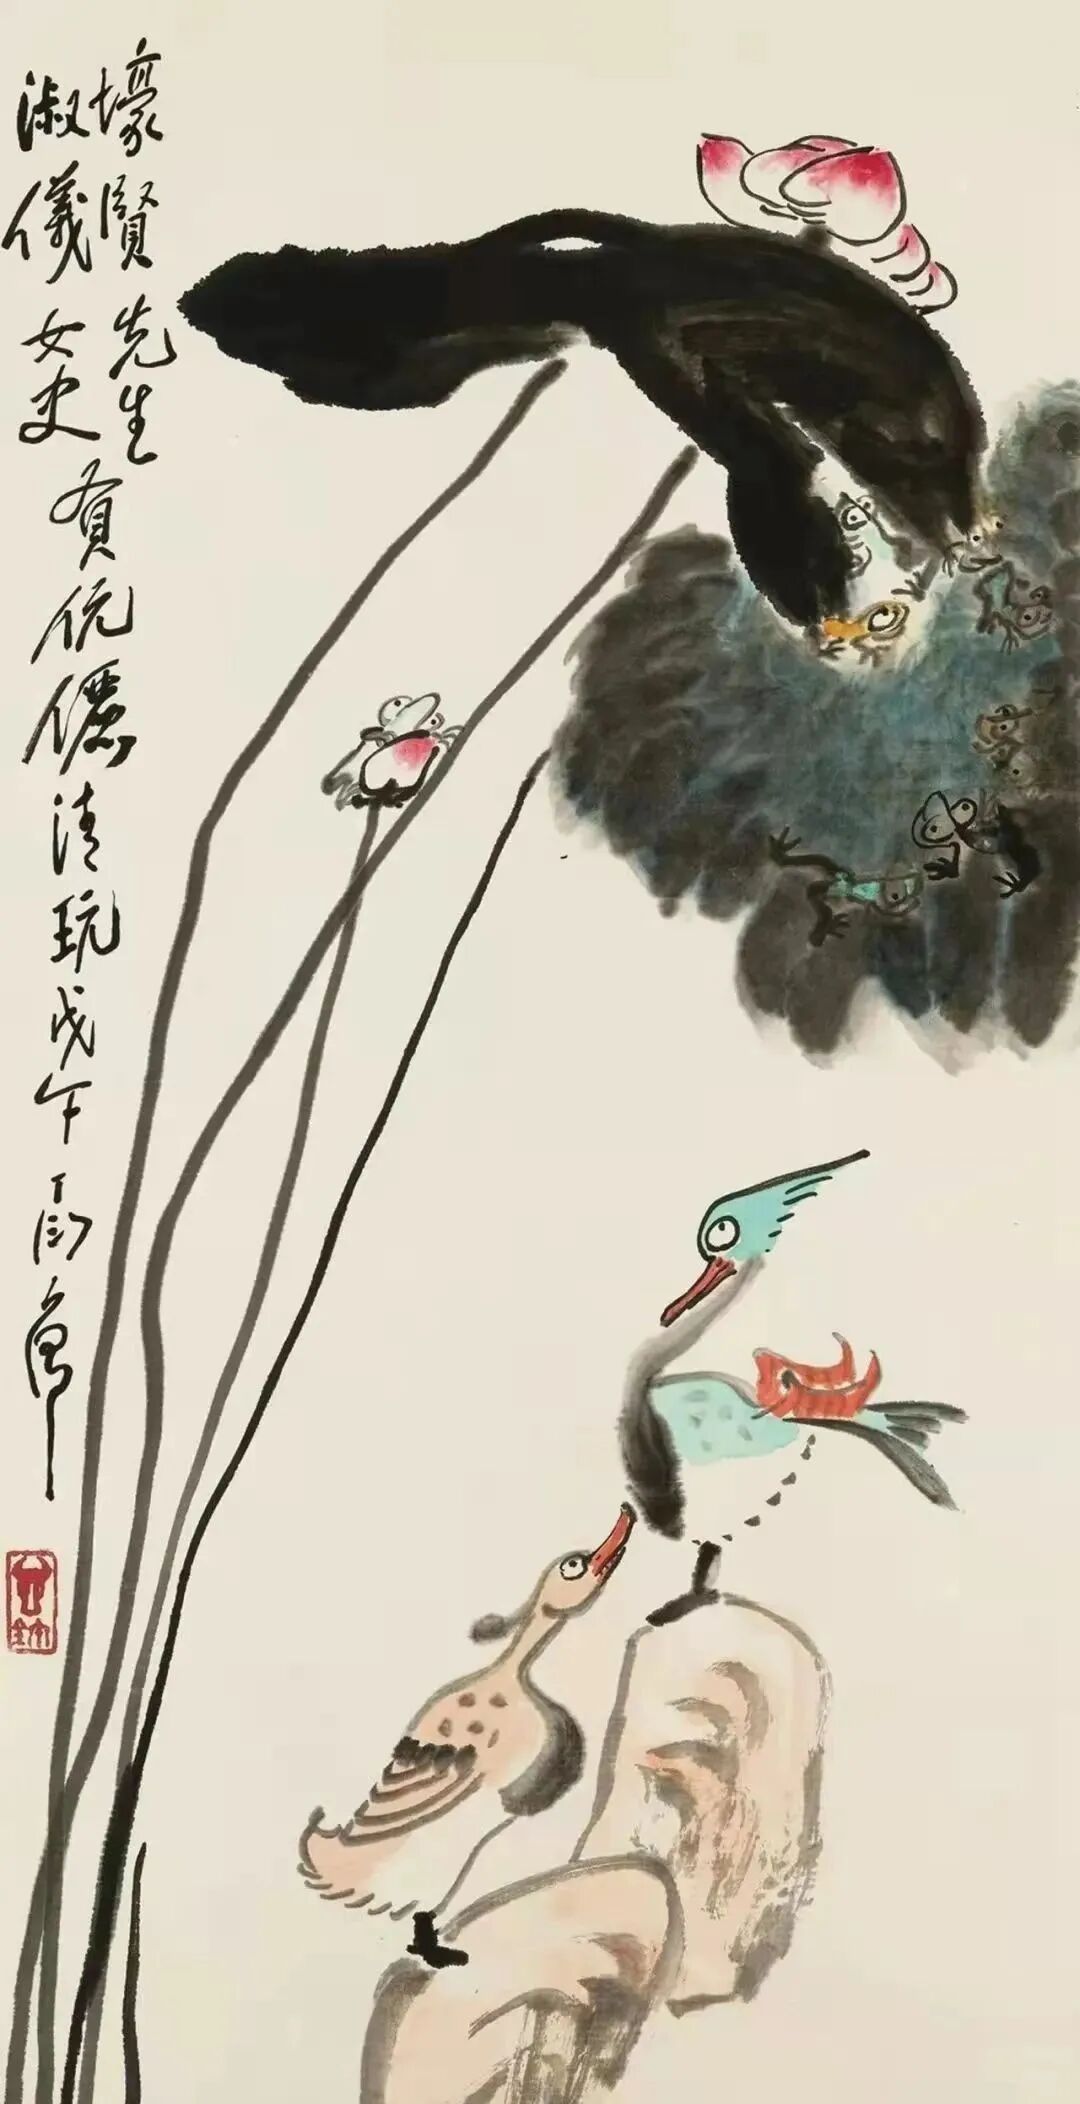 壕賢先生
淑儀女史 賢伉儷清玩 戊午 丁衍庸